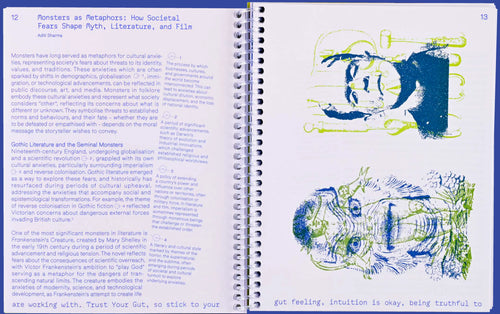 12
Monsters as Metaphors: How Societal
Fears Shape Myth, Literature, and Film
Aditi Sharma
Monsters have long served as metaphors for cultural anxie-
ties, representing society's fears about threats to its identity,
values, and traditions. These anxieties which are often
sparked by shifts in demographics, globalisation 1, immig-
ration, or technological advancements, can be reflected in
public discourse, art, and media. Monsters in folklore
embody these cultural anxieties and represent what society
considers "other", reflecting its concerns about what is
different or unknown. They symbolise threats to established
norms and behaviours, and their fate - whether they are
to be defeated or empathised with - depends on the moral
message the storyteller wishes to convey.
Gothic Literature and the Seminal Monsters
Nineteenth century England, undergoing globalisation
and a scientific revolution 2, grappled with its own
cultural anxieties, particularly surrounding imperialism
3 and reverse colonisation. Gothic literature emerged
as a way to explore these fears, and historically has
resurfaced during periods of cultural upheaval,
addressing the anxieties that accompany social and
epistemological transformations. For example, the theme
of reverse colonisation in Gothic fiction 4 reflected
Victorian concerns about dangerous external forces
invading British culture.
One of the most significant monsters in literature is
Frankenstein's Creature, created by Mary Shelley in
the early 19th century during a period of scientific
advancement and religious tension. The novel reflects
fears about the consequences of scientific overreach,
with Victor Frankenstein's ambition to "play God"
serving as a metaphor for the dangers of tran-
scending natural limits. The creature embodies the
anxieties of modernity, science, and technological
development, as Frankenstein's attempt to create life
1
The process by which
businesses, cultures,
and governments around
the world become
interconnected. This can
lead to worries about
cultural erosion, economic
displacement, and the loss
of national identity.
2
A period of significant
scientific advancements,
such as Darwin's
theory of evolution
and industrial
innovations, which
challenged
established religious and
philosophical worldviews.
3
A policy of extending
a country's power and
influence over other
nations or territories, often
through colonisation or
military force. In literature
and film, imperialism is
sometimes represented
through monstrous beings
that challenge or threaten
the established order.
4
A literary and cultural style
marked by themes of the
horror, the supernatural
and the sublime, often
emerging during periods
of societal and cultural
turmoil to explore
underlying anxieties.
are working with. Trust Your Gut, so stick to your
13
gut feeling, intuition is okay, being truthful to